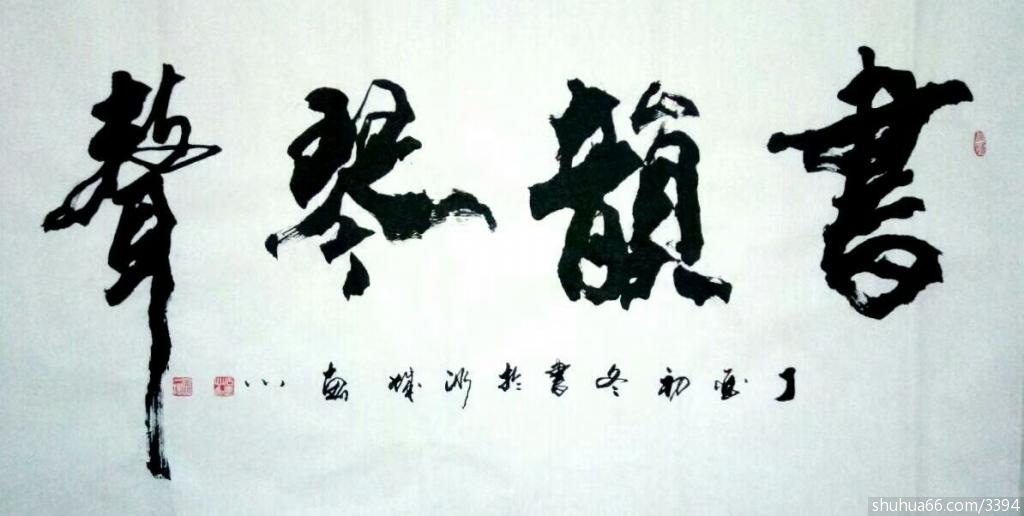 書韻琴聲
丁酉初冬書於冰城
shuhua66.com/3394